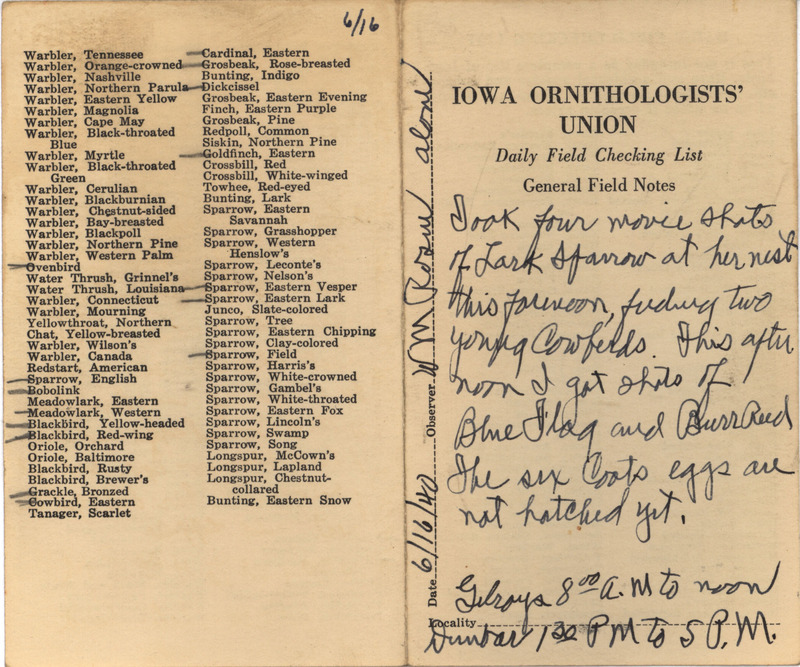 6/16
Warbler, Tennessee
Warbler, Orange-crowned
Warbler, Nashville
Warbler, Northern Parula
Warbler, Eastern Yellow
Warbler, Magnolia
Warbler, Cape May
Warbler, Black-throated
Blue
Warbler, Myrtle
Warbler, Black-throated
Green
Warbler, Cerulian
Warbler, Blackburnian
Warbler, Chestnut-sided
Warbler, Bay-breasted
Warbler, Blackpoll
Warbler, Northern Pine
Warbler, Western Palm
Ovenbird
Water Thrush, Grinnel's
Water Thrush, Louisiana
Warbler, Connecticut
Warbler, Mourning
Yellowthroat, Northern
Chat, Yellow-breasted
Warbler, Wilson's
Warbler, Canada
Redstart, American
Sparrow, English
Bobolink
Meadowlark, Eastern
Meadowlark, Western
Blackbird, Yellow-headed
Blackbird, Red-wing
Oriole, Orchard
Oriole, Baltimore
Blackbird, Rusty
Blackbird, Brewer's
Grackle, Bronzed
Cowbird, Eastern
Tanager, Scarlet
Cardinal, Eastern
Grosbeak, Rose-breasted
Bunting, Indigo
Dickcissel
Grosbeak, Eastern Evening
Finch, Eastern Purple
Grosbeak, Pine
Redpoll, Common
Siskin, Northern Pine
Goldfinch, Eastern
Crossbill, Red
Crossbill, White-winged
Towhee, Red-eyed
Bunting, Lark
Sparrow, Eastern
Savannah
Sparrow, Grasshopper
Sparrow, Western
Henslow's
Sparrow, Leconte's
Sparrow, Nelson's
Sparrow, Eastern Vesper
Sparrow, Eastern Lark
Junco, Slate-colored
Sparrow, Tree
Sparrow, Eastern Chipping
Sparrow, Clay-colored
Sparrow, Field
Sparrow, Harris's
Sparrow, White-crowned
Sparrow, Gambel's
Sparrow, White-throated
Sparrow, Eastern Fox
Sparrow, Lincoln's
Sparrow, Swamp
Sparrow, Song
Longspur, McCown's
Longspur, Lapland
Longspur, Chestnut-
collared
Bunting, Eastern Snow
Date 6/16/40 Observer W M Rosene alone
IOWA ORNITHOLOGISTS'
UNION
Daily Field Checking List
General Field Notes
Took four movie shots
of Lark Sparrow at her nest
this forenoon, feeding two
young Cowbirds. This after
noon I got shots of
Blue Flag and Burr Reed
The six Coots eggs are
not hatched yet.
Gilroys 8 00 A.M to noon
Locality
Dunbar 1 30 P M to 5 P.M.